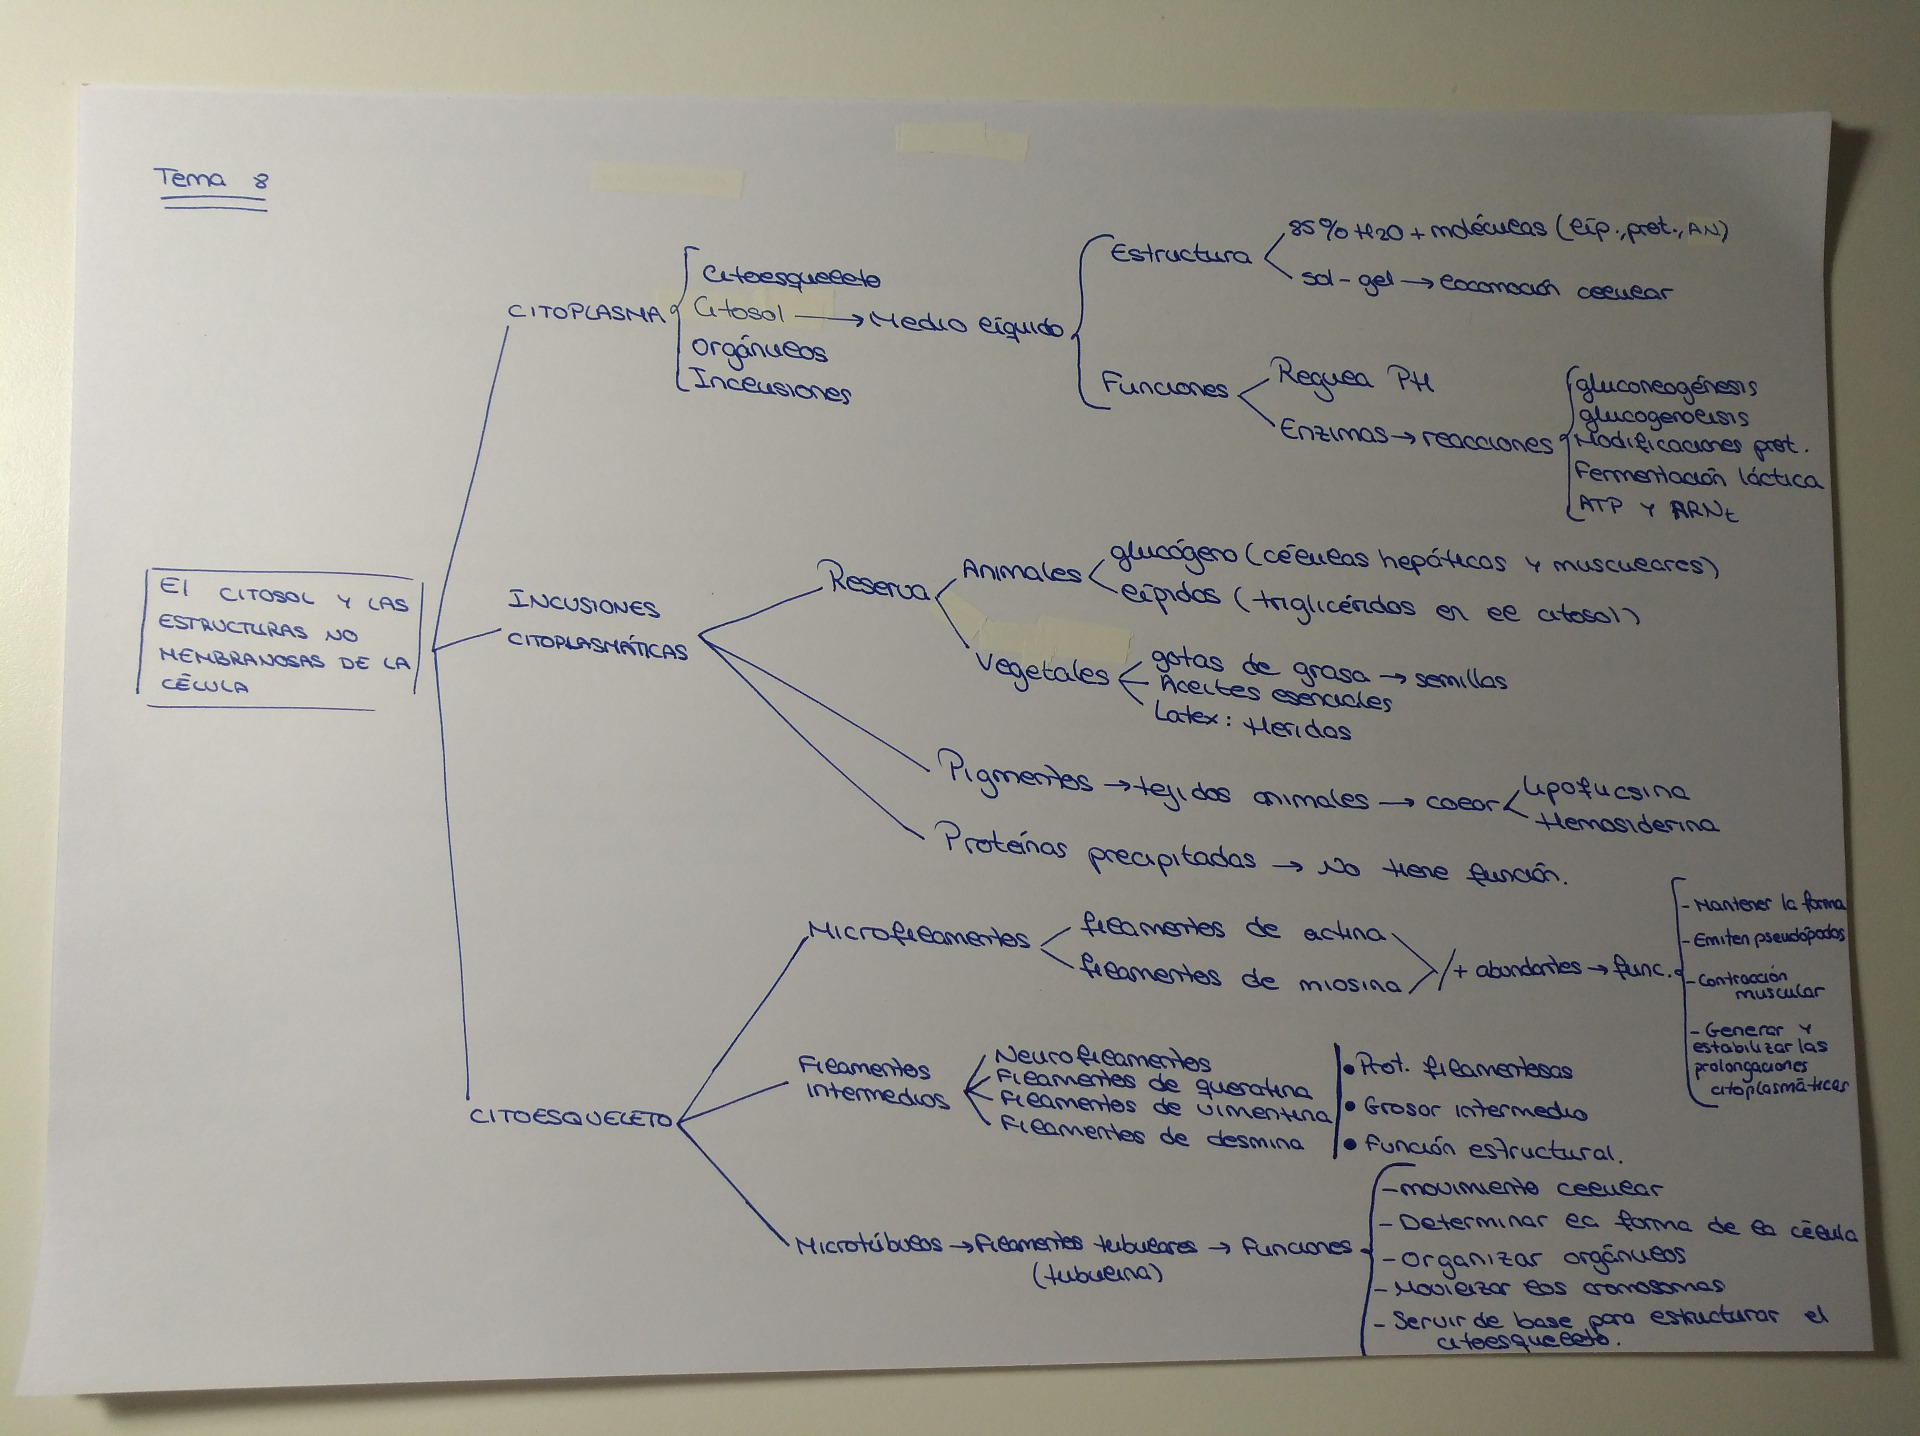 Tema 8
El CITOSOL Y LAS
ESTRUCTURAS NO
MEMBRANOSAS DE LA
CÉLULA
CITOPLASMA
Citoesqueleto
Citosol → Medio líquido
Orgánulos
Inclusiones
Estructura
85% H2O + moléculas (líp., prot., AN)
sol-gel → locomoción celular
Funciones
Regula PH
Enzimas → reacciones
gluconeogénesis
glucogenolisis
Modificaciones prot.
Fermentación láctica
ATP Y ARNt
INCUSIONES
CITOPLASMÁTICAS
Reserva
Animales
glucógeno (células hepáticas y musculares)
lípidos (triglicéridos en el citosol)
Vegetales
gotas de grasa → semillas
Aceites esenciales
Latex: Heridas
Pigmentos → tejidos animales → color
Lipofucsina
Hemosiderina
Proteínas precipitadas → No tiene función.
CITOESQUELETO
Microfilamentos
filamentos de actina
filamentos de miosina
+ abundantes → func.
- Mantener la forma
- Emiten pseudópodos
- Contracción
muscular
- Generar y
estabilizar las
prolongaciones
citoplasmáticas
Filamentos
intermedios
Neurofilamentos
Filamentos de queratina
Filamentos de vimentina
Filamentos de desmina
• Prot. filamentosas
• Grosor intermedio
• Función estructural.
Microtúbulos → Filamentos tubulares → Funciones
(tubulina)
- movimiento celular
- Determinar la forma de la célula
- Organizar orgánulos
- Movilizar los cromosomas
- Servir de base para estructurar el
citoesqueleto.